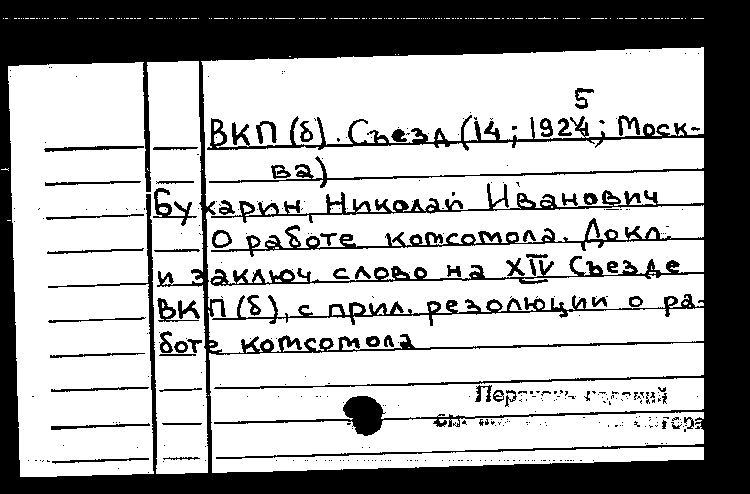 ВКП(б). Съезд (14; 1925; Моск-
ва)
Бухарин, Николай Иванович
О работе комсомола. Докл.
и заключ. слово на XIV Съезде
ВКП(б), с прил. резолюции о ра-
боте комсомола